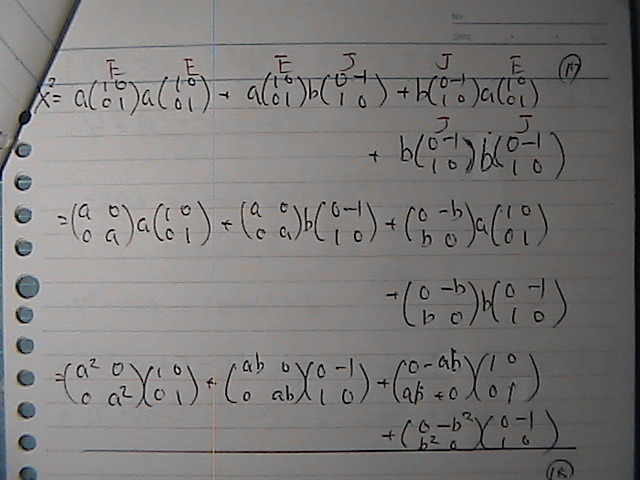 No.
DATE
E E E J J E ⑰
X²= a(1 0 0 1)a(1 0 0 1) + a(1 0 0 1)b(0 -1 1 0) + b(0 -1 1 0)a(1 0 0 1)
J J
+ b(0 -1 1 0)b(0 -1 1 0)
=(a 0 0 a)a(1 0 0 1)+(a 0 0 a)b(0 -1 1 0)+(0 -b b 0)a(1 0 0 1)
+(0 -b b 0)b(0 -1 1 0)
=(a² 0 0 a²)(1 0 0 1)+(ab 0 0 ab)(0 -1 1 0)+(0 -ab ab +0)(1 0 0 1)
+(0 -b² b² 0)(0 -1 1 0)